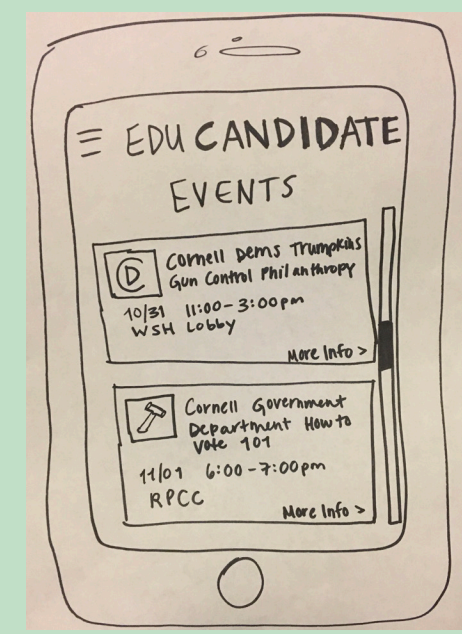 EDUCANDIDATE
EVENTS
D
Cornell Dems Trumpkins
Gun Control Philanthropy
10/31 11:00-3:00pm
WSH Lobby
More Info >
Cornell Government
Department How to
Vote 101
11/01 6:00-7:00pm
RPCC
More Info >